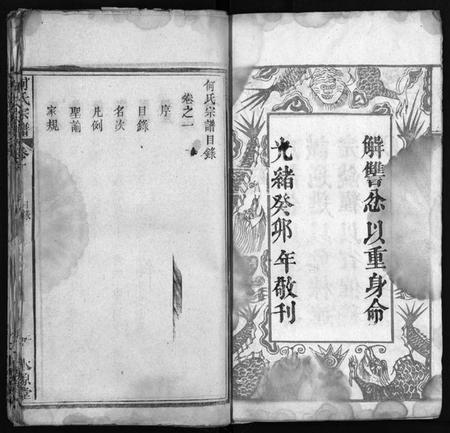 解讐忿以重身命
光緒癸卯年敬刊
何氏宗譜目錄
卷之一
序
目錄
名次
凡例
聖諭
家規
何氏宗譜
卷一
目錄